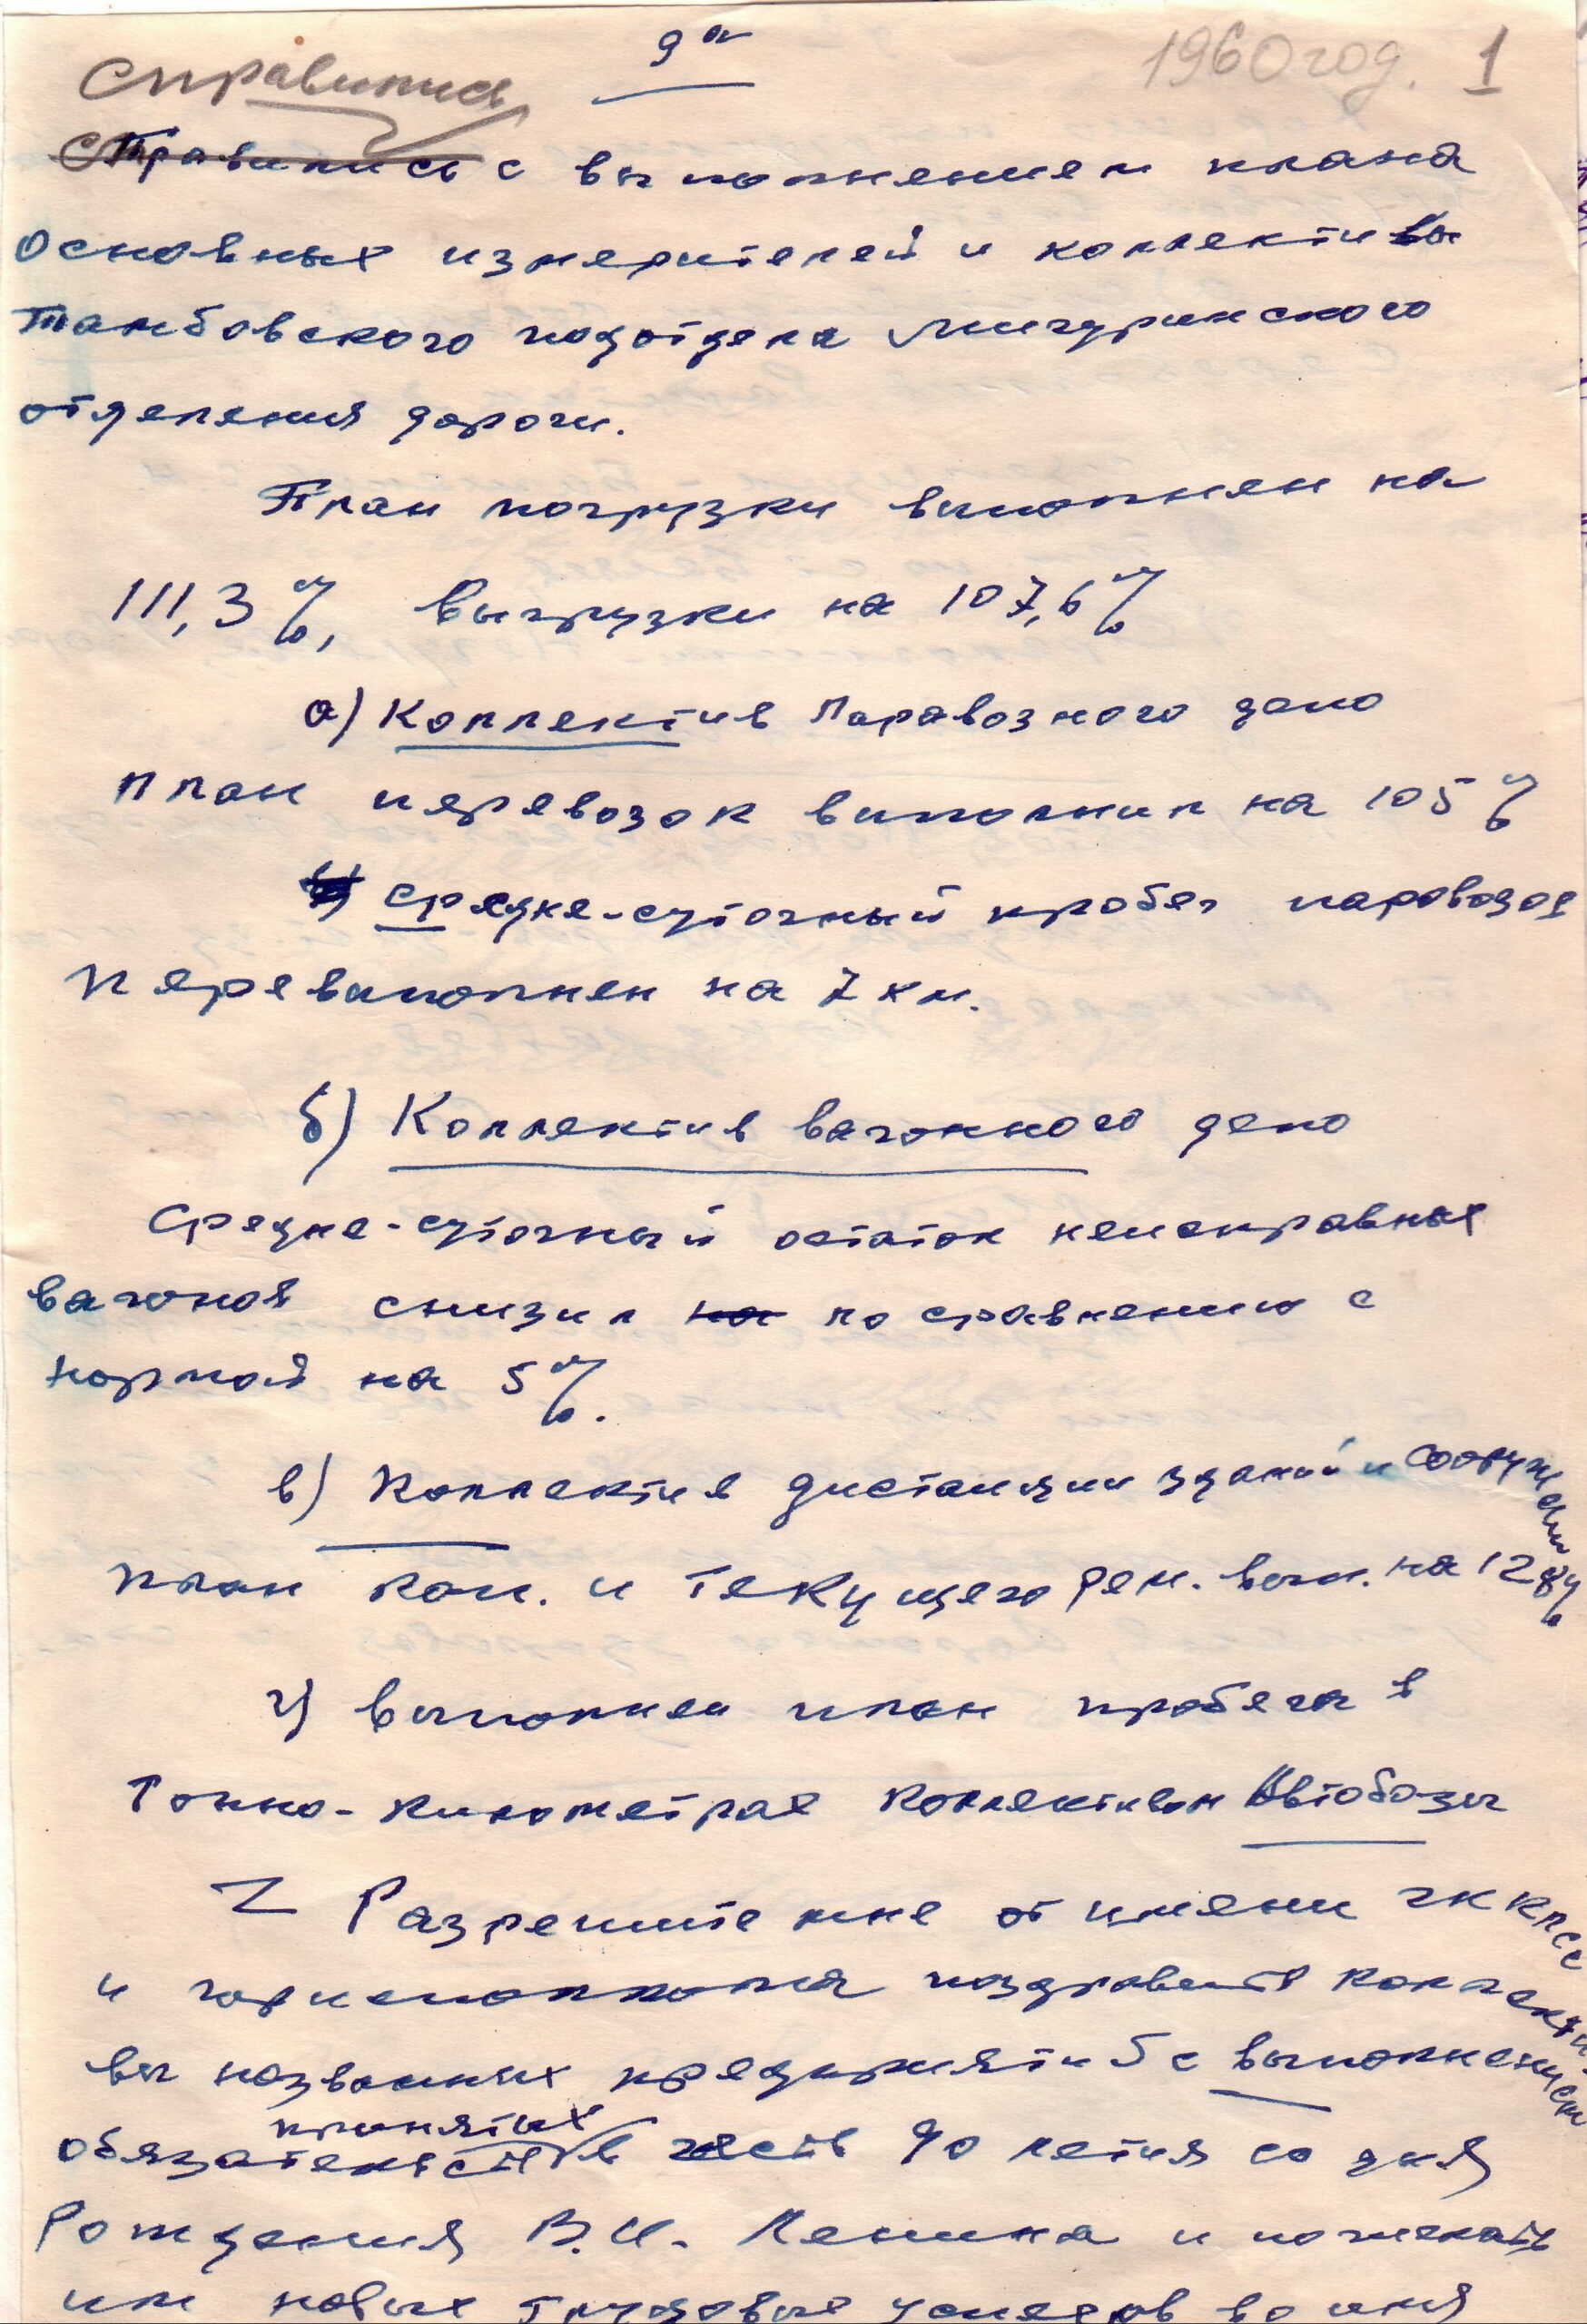 9а
1960 год. 1
Справились
Справились с выполнением плана
основных измерителей и коллективы
Тамбовского подотдела Мичуринского
отделения дороги.
План погрузки выполнен на
111,3%, выгрузки на 107,6%
а) Коллектив Паровозного депо
план перевозок выполнил на 105%
Средне-суточный пробег паровозов
перевыполнен на 7 км.
б) Коллектив вагонного депо
Средне-суточный остаток неисправных
вагонов снизил на по сравнению с
нормой на 5%.
в) Коллектив дистанции зданий и сооружений
план кап. и текущего рем. вып. на 128%
г) выполнен план пробега в
Тонно-километрах коллективом Автобазы
Z Разрешите мне от имени ГК КПСС
и горисполкома поздравить коллекти-
вы названных предприятий с выполнением
принятых
обязательств в честь 90 летия со дня
Рождения В.И. Ленина и пожелать
им новых трудовых успехов во имя